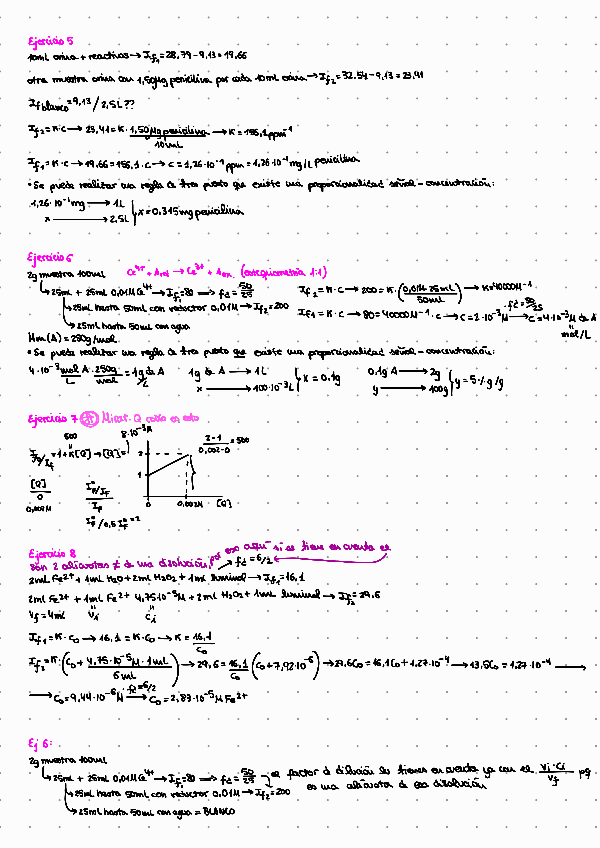 Ejercicio 5
10mL orina + reactivos → If₁ = 28,79 - 9,13 = 19,66
otra muestra orina con 1,50µg penicilina por cada 10mL orina → If₂ = 32,54 - 9,13 = 23,41
If blanco = 9,13 / 2,5L??
If₂ = K·C → 23,41 = K· 1,50µg penicilina / 10mL → K = 156,1 ppm⁻¹
If₁ = K·C → 19,66 = 156,1·C → C = 1,26·10⁻¹ ppm = 1,26·10⁻¹ mg/L penicilina
• Se puede realizar una regla de tres puesto que existe una proporcionalidad señal-concentración:
1,26·10⁻¹ mg → 1L
x → 2,5L } x = 0,315mg penicilina
Ejercicio 6
2g muestra 100mL Ce⁴⁺ + Ared → Ce³⁺ + Aox (estequiometría 1:1)
↳ 25mL + 25mL 0,01M Ce⁴⁺ → If₁ = 80 ⇒ fd = 50/25
↳ 25mL hasta 50mL con reductor 0,01M → If₂ = 200
↳ 25mL hasta 50mL con agua
If₂ = K·C → 200 = K·(0,01M·25mL / 50mL) → K = 40000M⁻¹
If₁ = K·C → 80 = 40000M⁻¹·C → C = 2·10⁻³M → C = 4·10⁻³M de A
mol/L
Mm(A) = 250g/mol
• Se puede realizar una regla de tres puesto que existe una proporcionalidad señal-concentración:
4·10⁻³ mol A / L · 250g / mol = 1g de A / L
1g de A → 1L
x → 100·10⁻³L } x = 0,1g
0,1g A → 2g
y → 100g } y = 5% g/g
Ejercicio 7
If₀/If = 1 + K[Q] → [Q] =
500
[Q]
0
0,002M
2
1
0
0,002M [Q]
2-1 / 0,002-0 = 500
Ejercicio 8
Son 2 alícuotas ≠ de una disolución, por eso aquí sí se tiene en cuenta el
fd = 6/2
2mL Fe²⁺ + 1mL H₂O + 2mL H₂O₂ + 1mL luminol → If₁ = 16,1
2mL Fe²⁺ + 1mL Fe²⁺ 4,75·10⁻⁵M + 2mL H₂O₂ + 1mL luminol → If₂ = 29,6
Vi Ci
If₁ = K·C₀ → 16,1 = K·C₀ → K = 16,1 / C₀
If₂ = K·(C₀ + 4,75·10⁻⁵M·1mL / 6mL) → 29,6 = 16,1 / C₀ (C₀ + 7,92·10⁻⁶) → 29,6C₀ = 16,1C₀ + 1,27·10⁻⁴ → 13,5C₀ = 1,27·10⁻⁴ →
→ C₀ = 9,44·10⁻⁶M fd = 6/2 → C₀ = 2,83·10⁻⁵M Fe²⁺
Ej 6:
2g muestra 100mL
↳ 25mL + 25mL 0,01M Ce⁴⁺ → If₁ = 80 ⇒ fd = 50/25
↳ 25mL hasta 50mL con reductor 0,01M → If₂ = 200
el factor de dilución lo tienes en cuenta ya con el Vi·Ci / Vf pq
es una alícuota de esa disolución
↳ 25mL hasta 50mL con agua = BLANCO